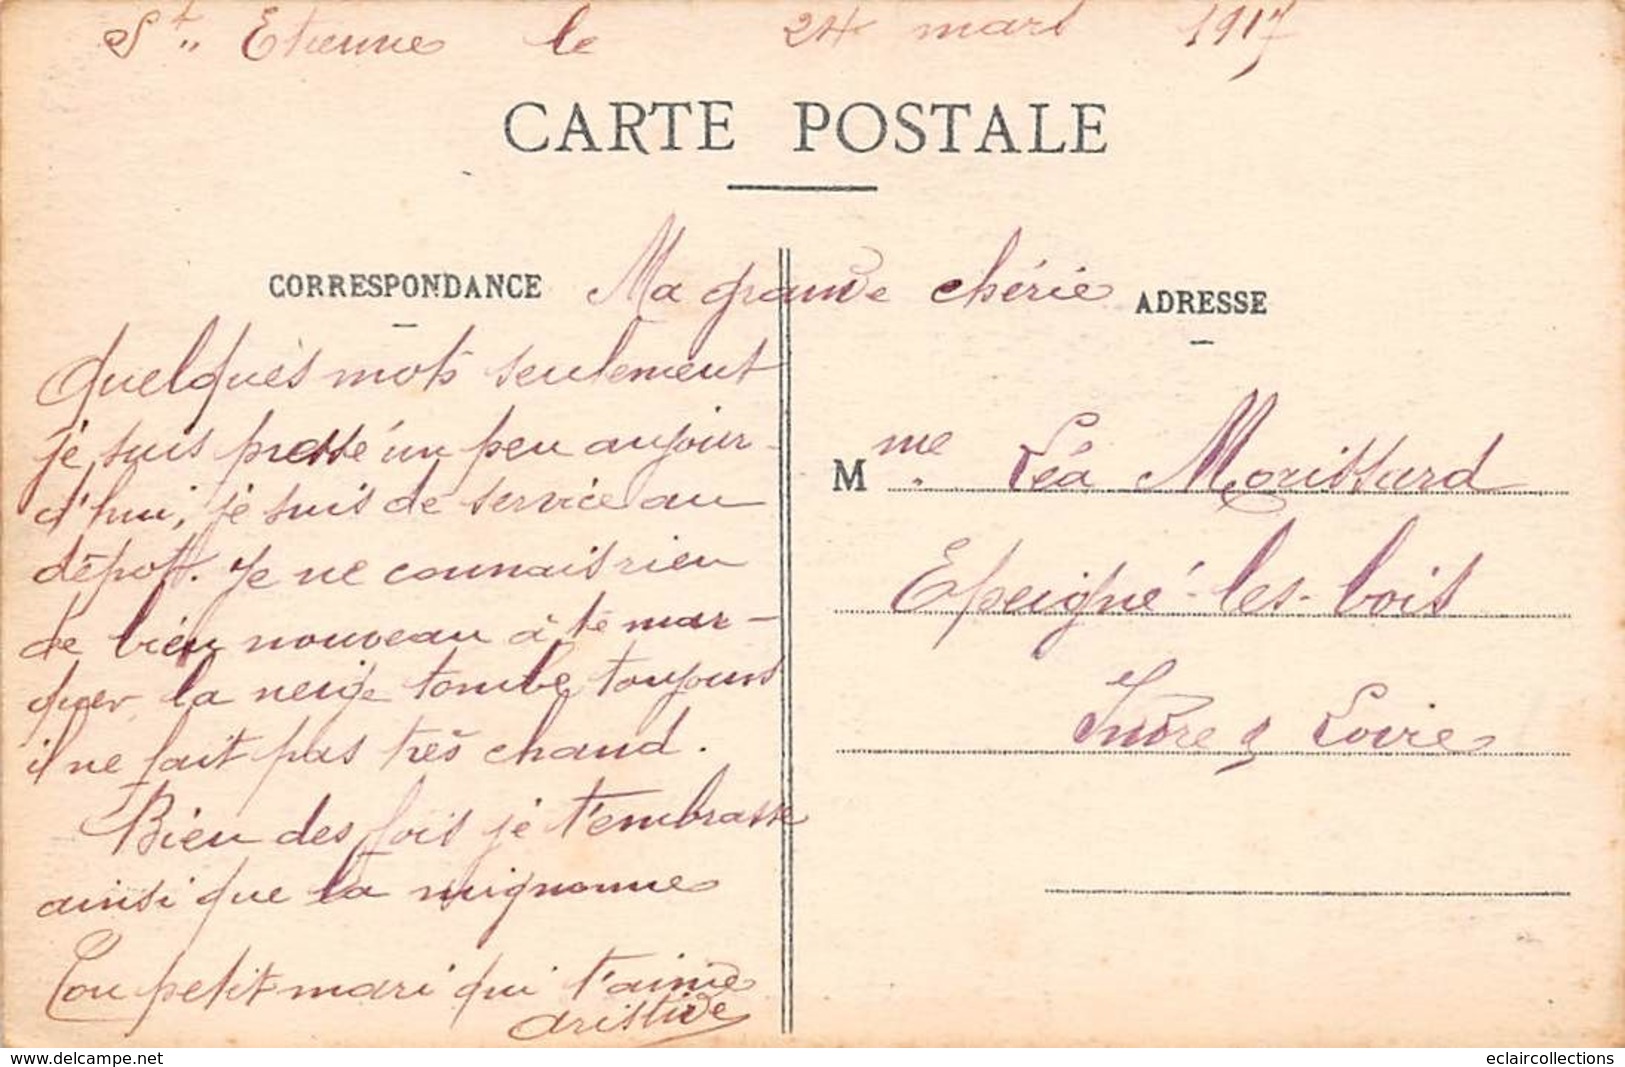 St Etienne le 24 mars 1917
CARTE POSTALE
CORRESPONDANCE
Ma grande chérie
ADRESSE
Quelques mots seulement
je suis pressé un peu aujour-
d'hui, je suis de service au
dépôt. Je ne connais rien
de bien nouveau à te mar-
quer la neige tombe toujours
il ne fait pas très chaud.
Bien des fois je t'embrasse
ainsi que la mignonne
Ton petit mari qui t'aime
Aristide
Mme Léa Morissard
Epeigné-les-bois
Indre & Loire
www.delcampe.net
eclaircollections